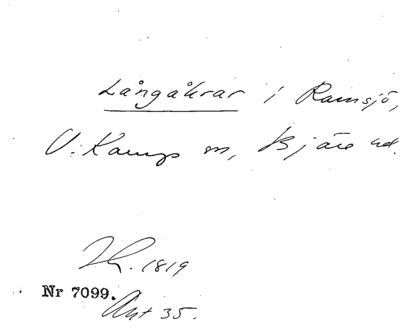 Långåkrar i Ramsjö,
V. Karups sn, Bjäre hd.
1819
Nr 7099.
Ant 35.